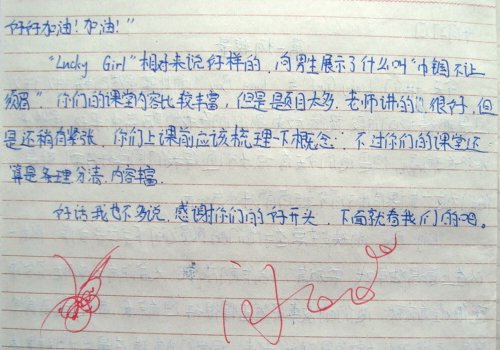 好好加油！加油！”
“Lucky Girl”相对来说好样的，向男生展示了什么叫“巾帼不让
须眉”。你们的课堂内容比较丰富，但是是题目太多，老师讲的很好，但
是还稍有紧张，你们上课前应该梳理一下概念。不过你们的课堂还
算是条理分清，内容丰富.
好话我也不多说，感谢你们的好开头，下面就看我们的吧。
good